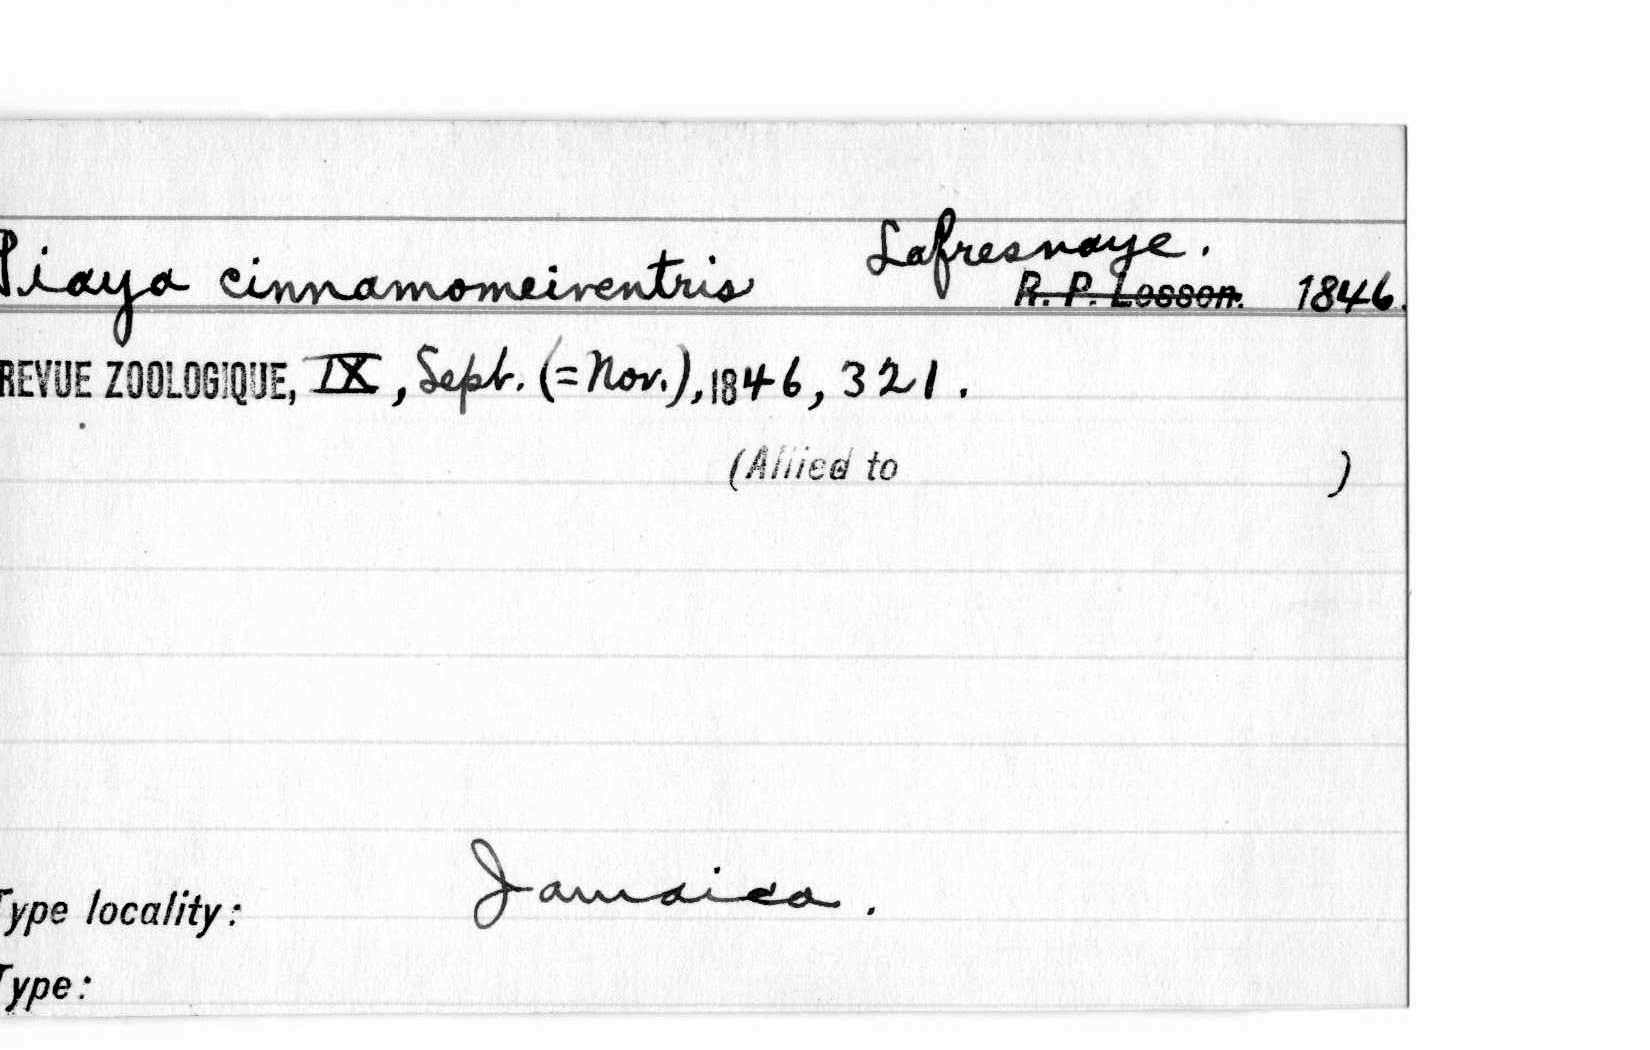 Piaya cinnamomeiventris Lafresnaye.
R. P. Lesson. 1846.
REVUE ZOOLOGIQUE, IX, Sept. (=Nov.), 1846, 321.
(Allied to )
Type locality: Jamaica.
Type: